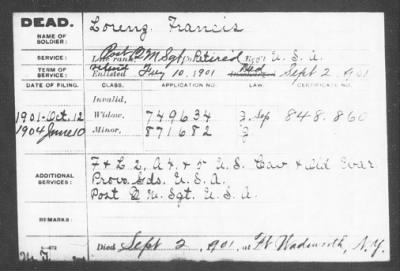 DEAD.
NAME OF SOLDIER:
Lorenz, Francis
SERVICE:
Late rank, Post Q M Sgt Retired Reg't U. S. A.
TERM OF SERVICE:
Enlisted July 10, 1901 Died Sept 2, 1901
DATE OF FILING. CLASS. APPLICATION NO. LAW. CERTIFICATE NO.
Invalid,
1901-Oct. 12 Widow, 749634 848.860
1904 June 10 Minor, 871682
ADDITIONAL SERVICES:
F & L 2, A 4, + 5" U. S. Cav + Old War.
Prov. Gds. U. S. A.
Post Q M. Sgt. U. S. A.
REMARKS:
Died Sept 2, 1901, at Ft Wadsworth, N.Y.